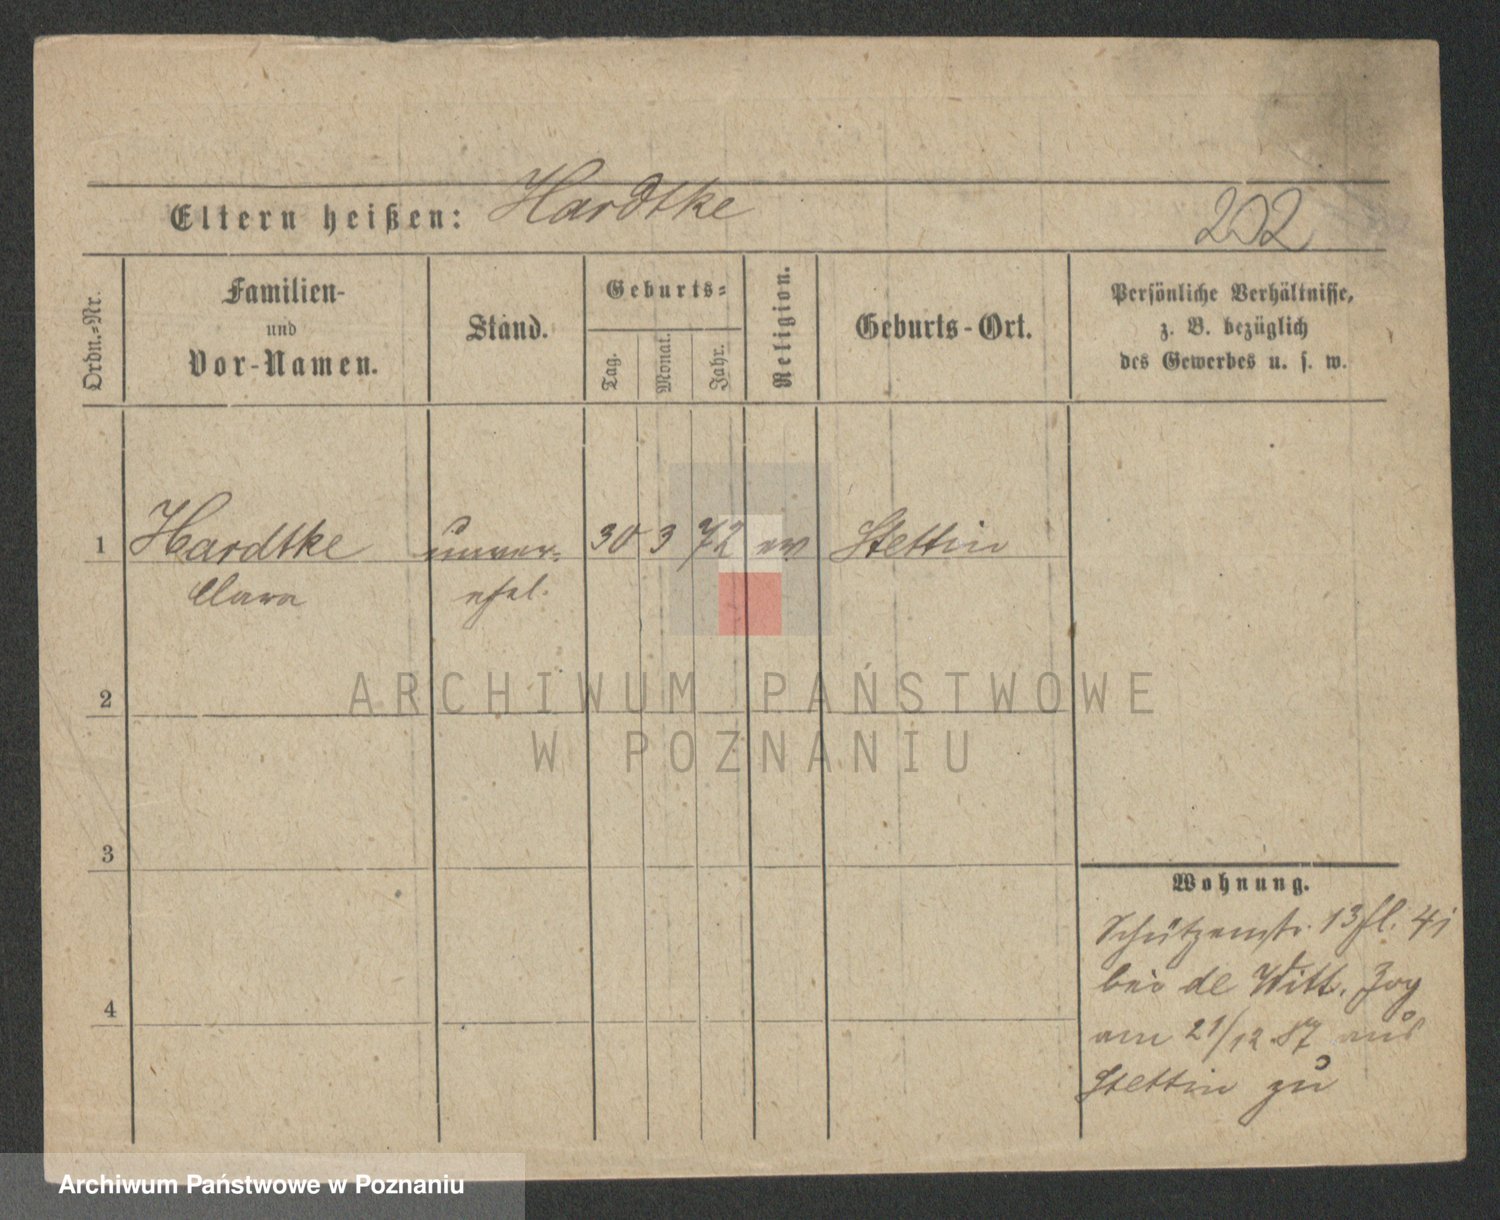 Eltern heißen: Hardtke
202
Ordn.-Nr.
Familien-
und
Vor-Namen.
Stand.
Geburts-
Tag.
Monat.
Jahr.
Religion.
Geburts-Ort.
Persönliche Verhältnisse,
z. B. bezüglich
des Gewerbes u. s. w.
1 Hardtke unver- 30 3 72 ev Stettin
Clara ehel.
2
3
4
Wohnung.
Schützenstr. 13
bei de Witt. Zog
am 21/12 87 aus
Stettin zu
ARCHIWUM PAŃSTWOWE
W POZNANIU
Archiwum Państwowe w Poznaniu